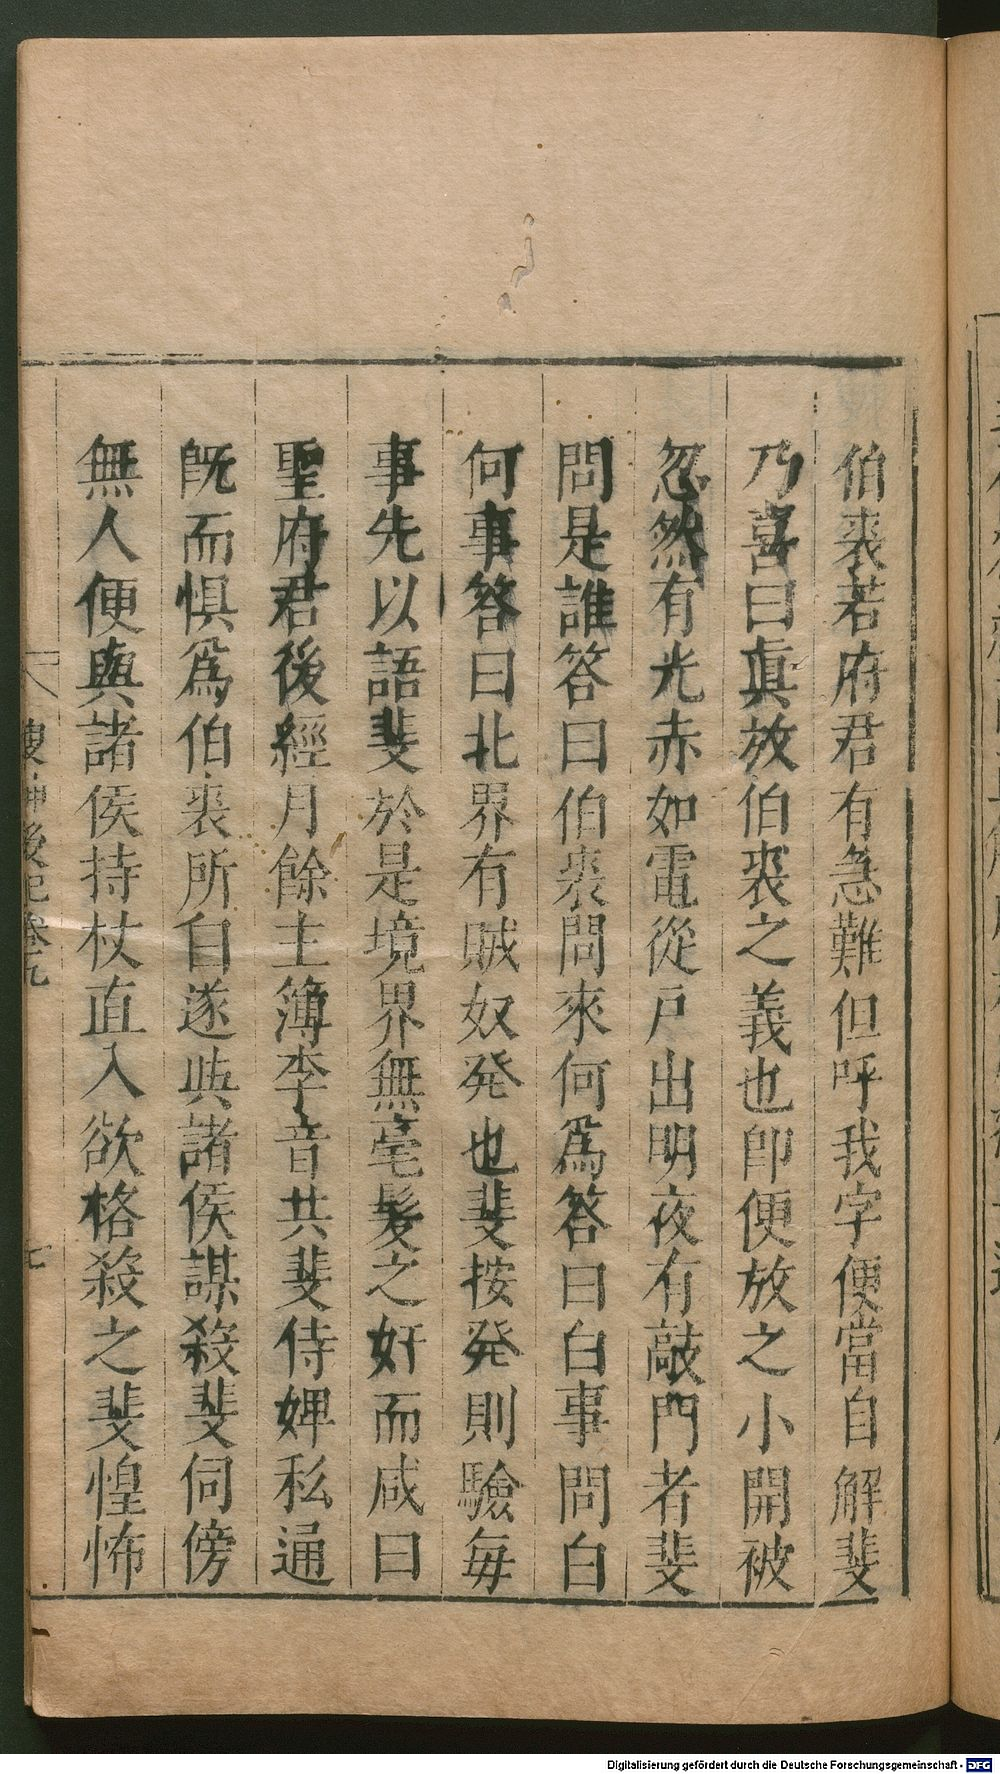 伯裘若府君有急難但呼我字便當自解斐
乃喜曰真放伯裘之義也卽便放之小開被
忽然有光赤如電從戶出明夜有敲門者斐
問是誰答曰伯裘問來何爲答曰白事問白
何事答曰北界有賊奴発也斐按発則驗每
事先以語斐於是境界無毫髮之奸而咸曰
聖府君後經月餘主簿李音共斐侍婢私通
旣而惧爲伯裘所白遂與諸侯謀殺斐伺傍
無人便與諸侯持杖直入欲格殺之斐惶怖
搜神後記卷九
七
Digitalisierung gefördert durch die Deutsche Forschungsgemeinschaft - DFG